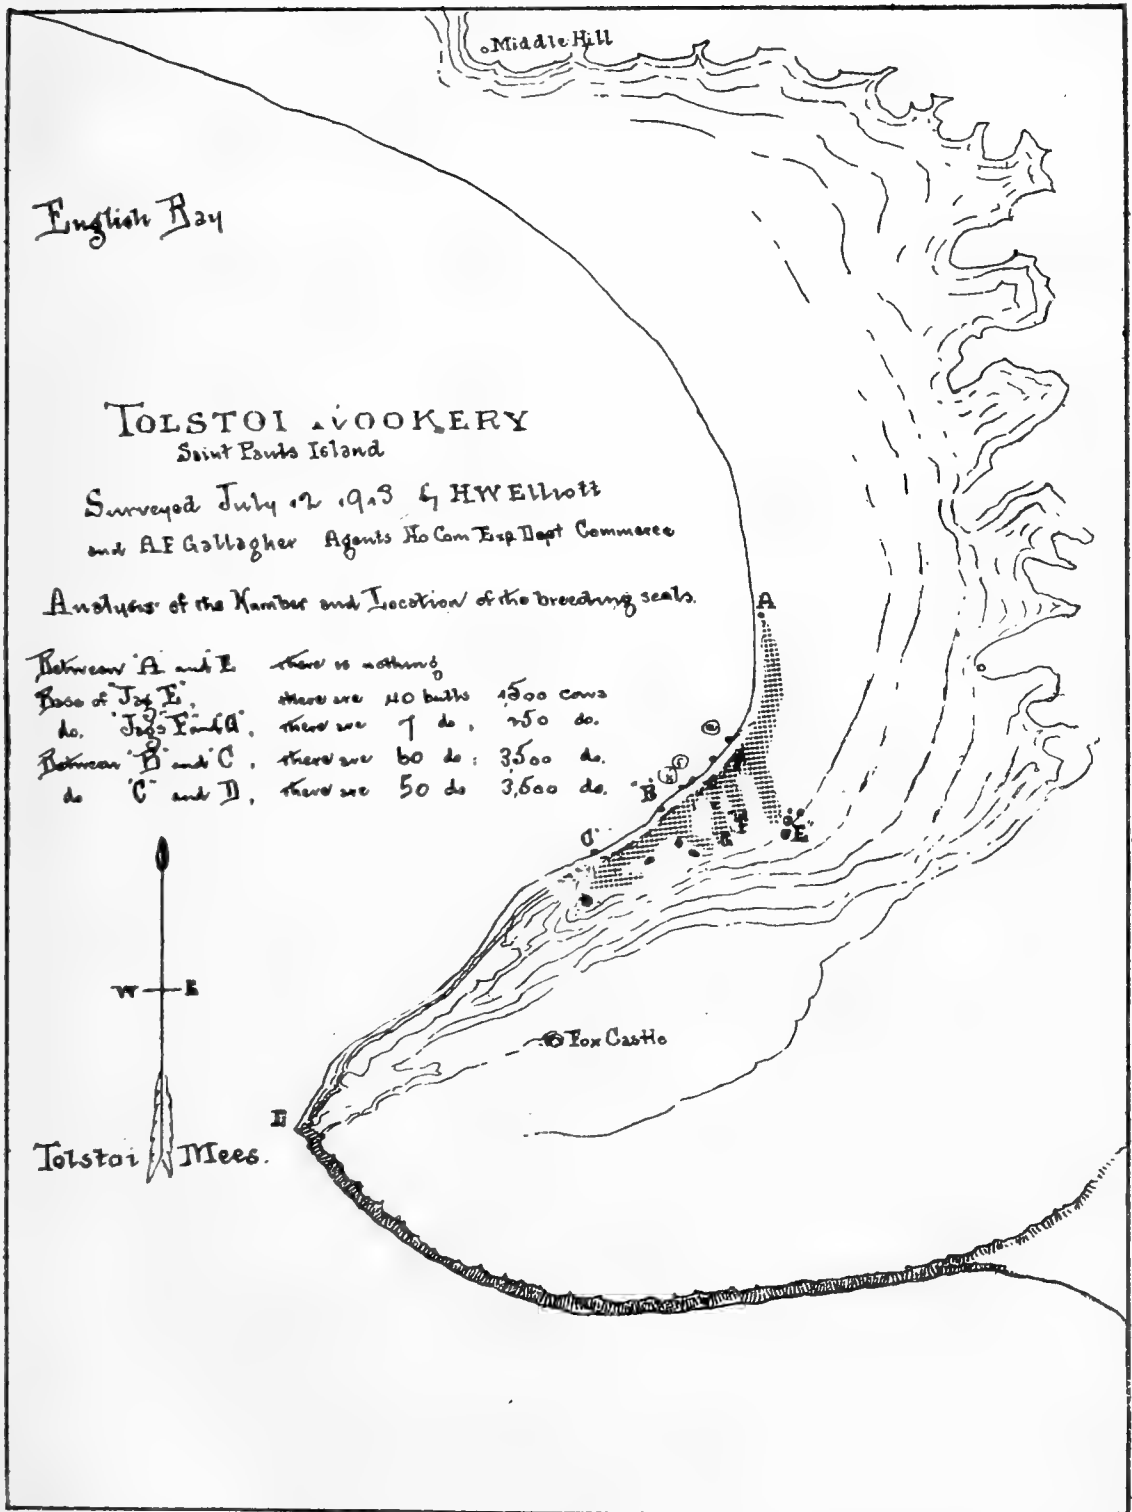 Middle Hill
English Bay
TOLSTOI ROOKERY
Saint Pauls Island
Surveyed July 12 1913 by H W Elliott
and A F Gallagher Agents Ho Com Exp Dept Commerce
Analysis of the Number and Location of the breeding seals.
Between "A" and E there is nothing
Base of "Jag E", there are 40 bulls 1500 cows
do. "Jags" F and G", there are 7 do, 250 do.
Between "B" and "C, there are 60 do; 3500 do.
do "C" and D, there are 50 do 3,500 do.
A
"B"
C
F
"E"
W E
Fox Castle
D
Tolstoi Mees.